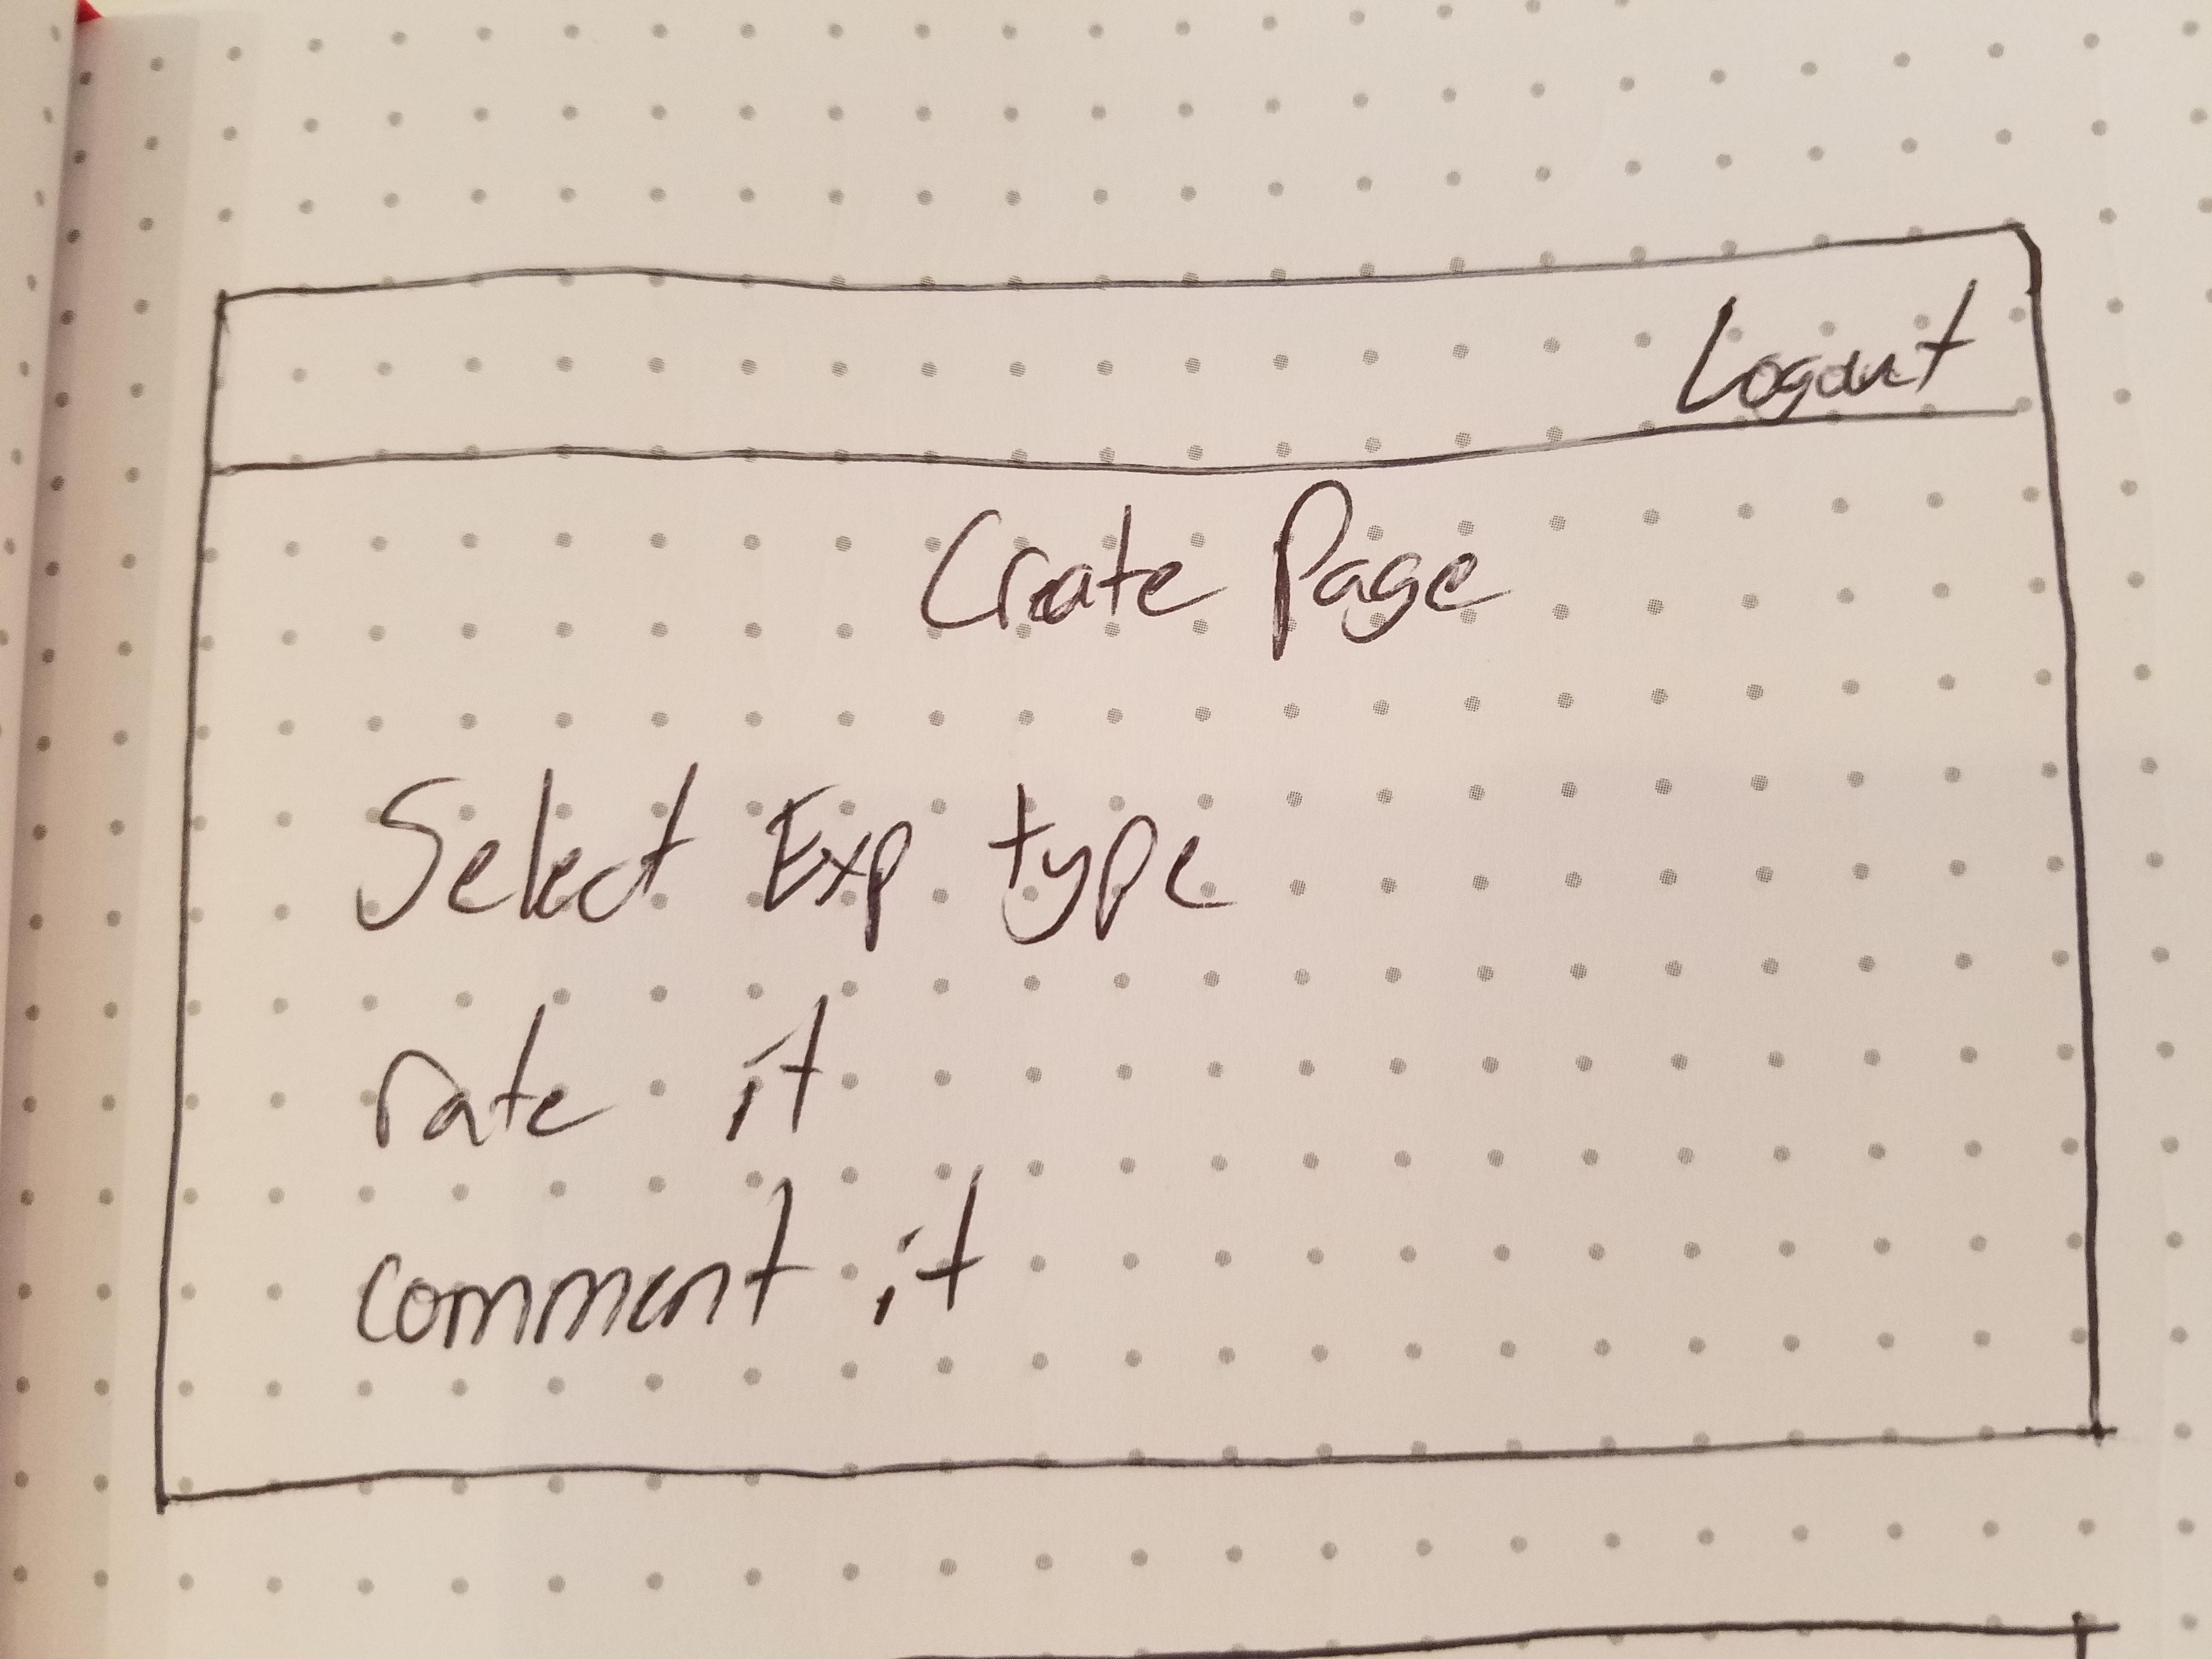 Logout
Create Page
Select Exp type
rate it
comment it